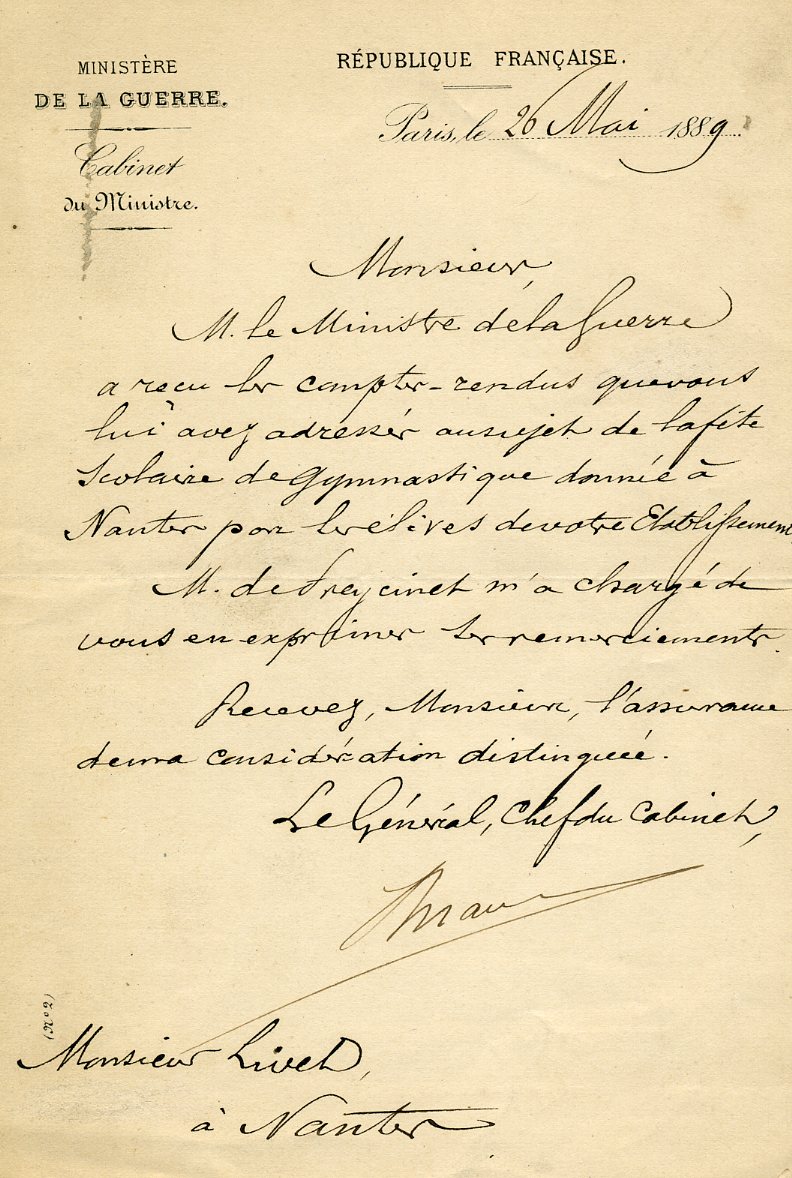 MINISTÈRE
DE LA GUERRE.
Cabinet
du Ministre.
RÉPUBLIQUE FRANÇAISE.
Paris, le 26 Mai 1889.
Monsieur,
M. le Ministre de la Guerre
a reçu les comptes-rendus que vous
lui avez adressés au sujet de la fête
Scolaire de Gymnastique donnée à
Nantes par les élèves de votre Etablissement
M. de Freycinet m'a chargé de
vous en exprimer ses remerciements.
Recevez, Monsieur, l'assurance
de ma considération distinguée.
Le Général, Chef du Cabinet,
(No 2)
Monsieur Livet,
à Nantes